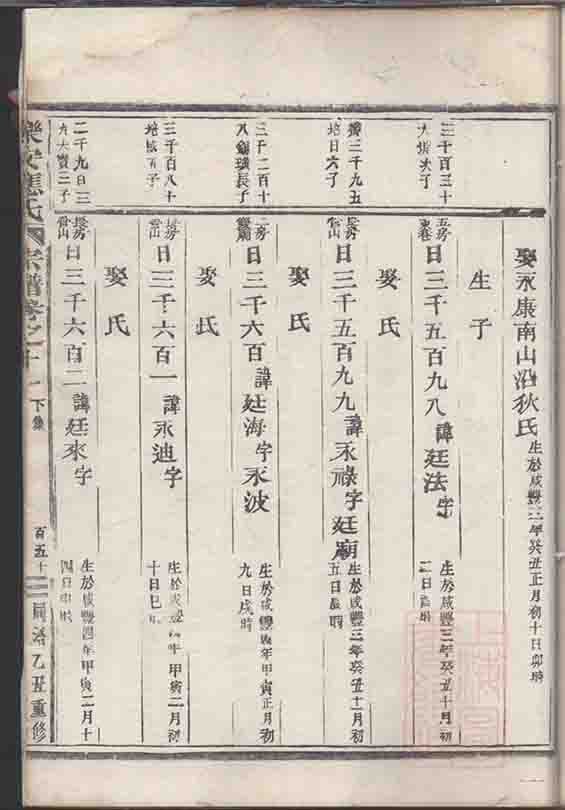 娶永康南山沿狄氏 生於咸豐三年癸丑正月初十日卯時
生子
三千百三十
大煥次子
五房
日三千五百九八諱廷法字
生於咸豐三年癸丑十月初
二日時
娶氏
三千九五
培日六子
長房
山
日三千五百九九諱永祿字廷廟
生於咸豐三年癸丑十一月初
五日時
娶氏
三千二百十
八錫璣長子
二房
日三千六百諱廷海字永波
生於咸豐四年甲寅正月初
九日戌時
娶氏
三千百八十
培城五子
長房
雪山
日三千六百一諱永迪字
生於咸豐四年甲寅二月初
十日巳時
娶氏
二千九百三
大寶三子
長房
雪山
日三千六百二諱廷來字
生於咸豐四年甲寅二月十
四日卯時
樂安應氏宗譜卷之十一 下集 百五十二 同治乙丑重修
上海圖書館藏